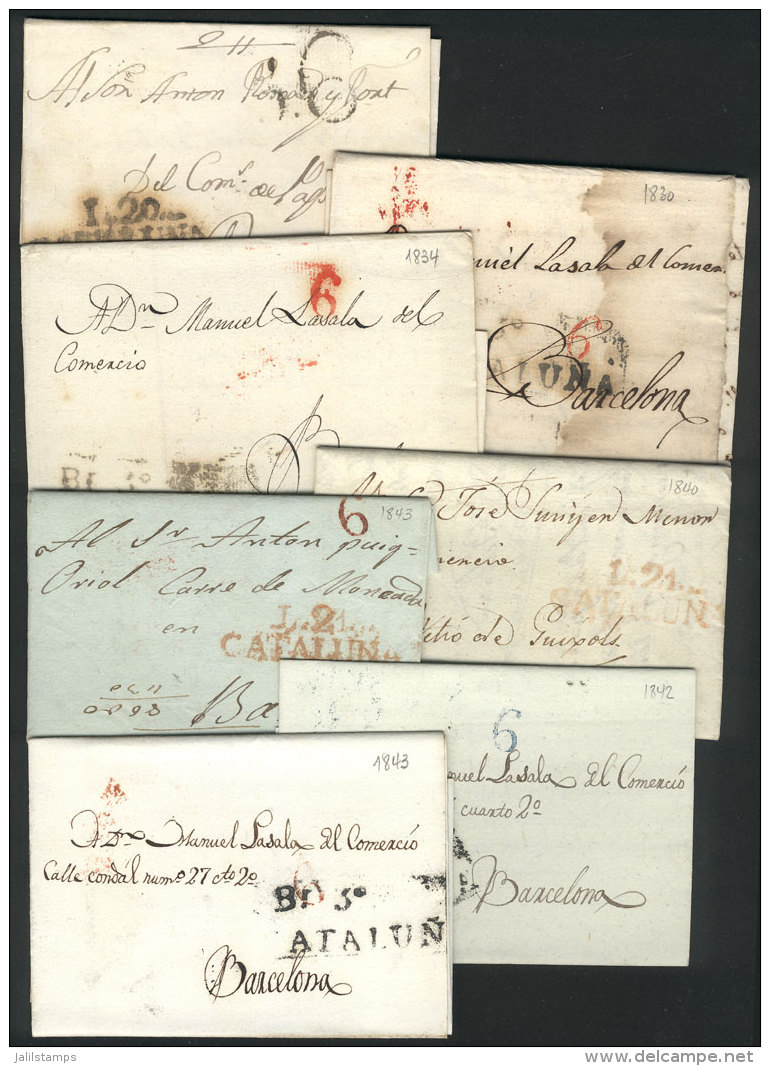 Al Sor Anton
Del Come de
L.20.
1830
Manuel Lasala del Comer
6
ALUÑA
Barcelona
1834
6
A Dn Manuel Lasala del
Comercio
B
1840
José Sunÿer Menor
L.21.
CATALUÑ
de Guixols
1843
6
Al Sr Anton puig-
Oriol Carre de Moncada
en
L.21.
CATALUÑA
Ba
1842
6
nuel Lasala del Comerció
cuarto 2º
Barcelona
1843
A Dn Manuel Lasala del Comerció
Calle condál numº 27 cto 2º
6
Bl 5º
ATALUÑ
Barcelona
jalilstamps
www.delcampe.net